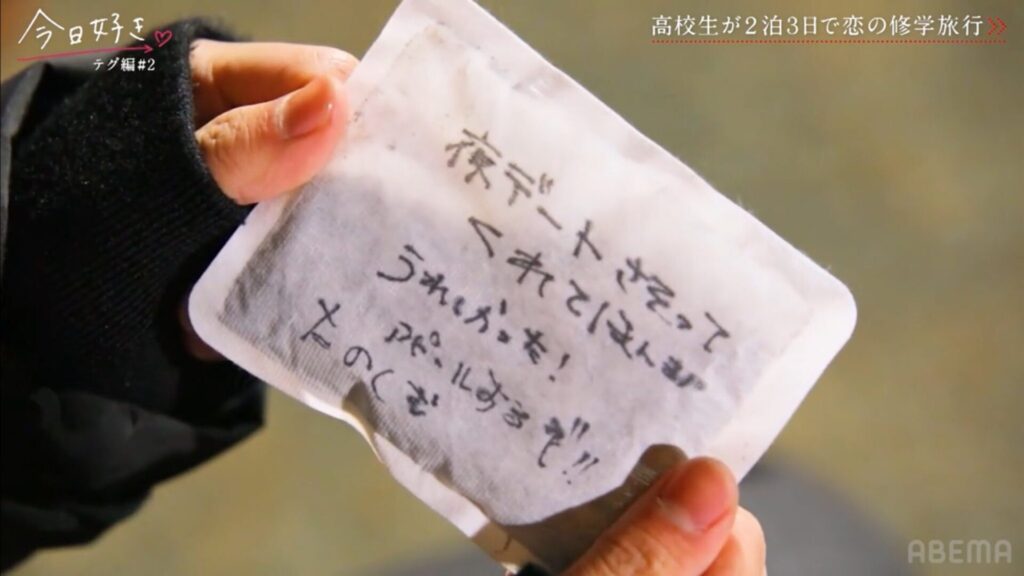 今日好き
テグ編#2
高校生が2泊3日で恋の修学旅行
夜デート誘って
くれてほんま
うれしかった!
アピールするぜ!!
ABEMA